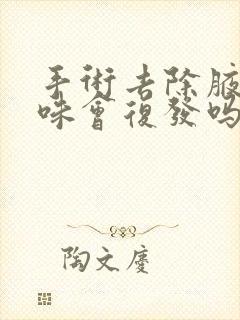 手術去除腋
味會復發吗
陶文慶